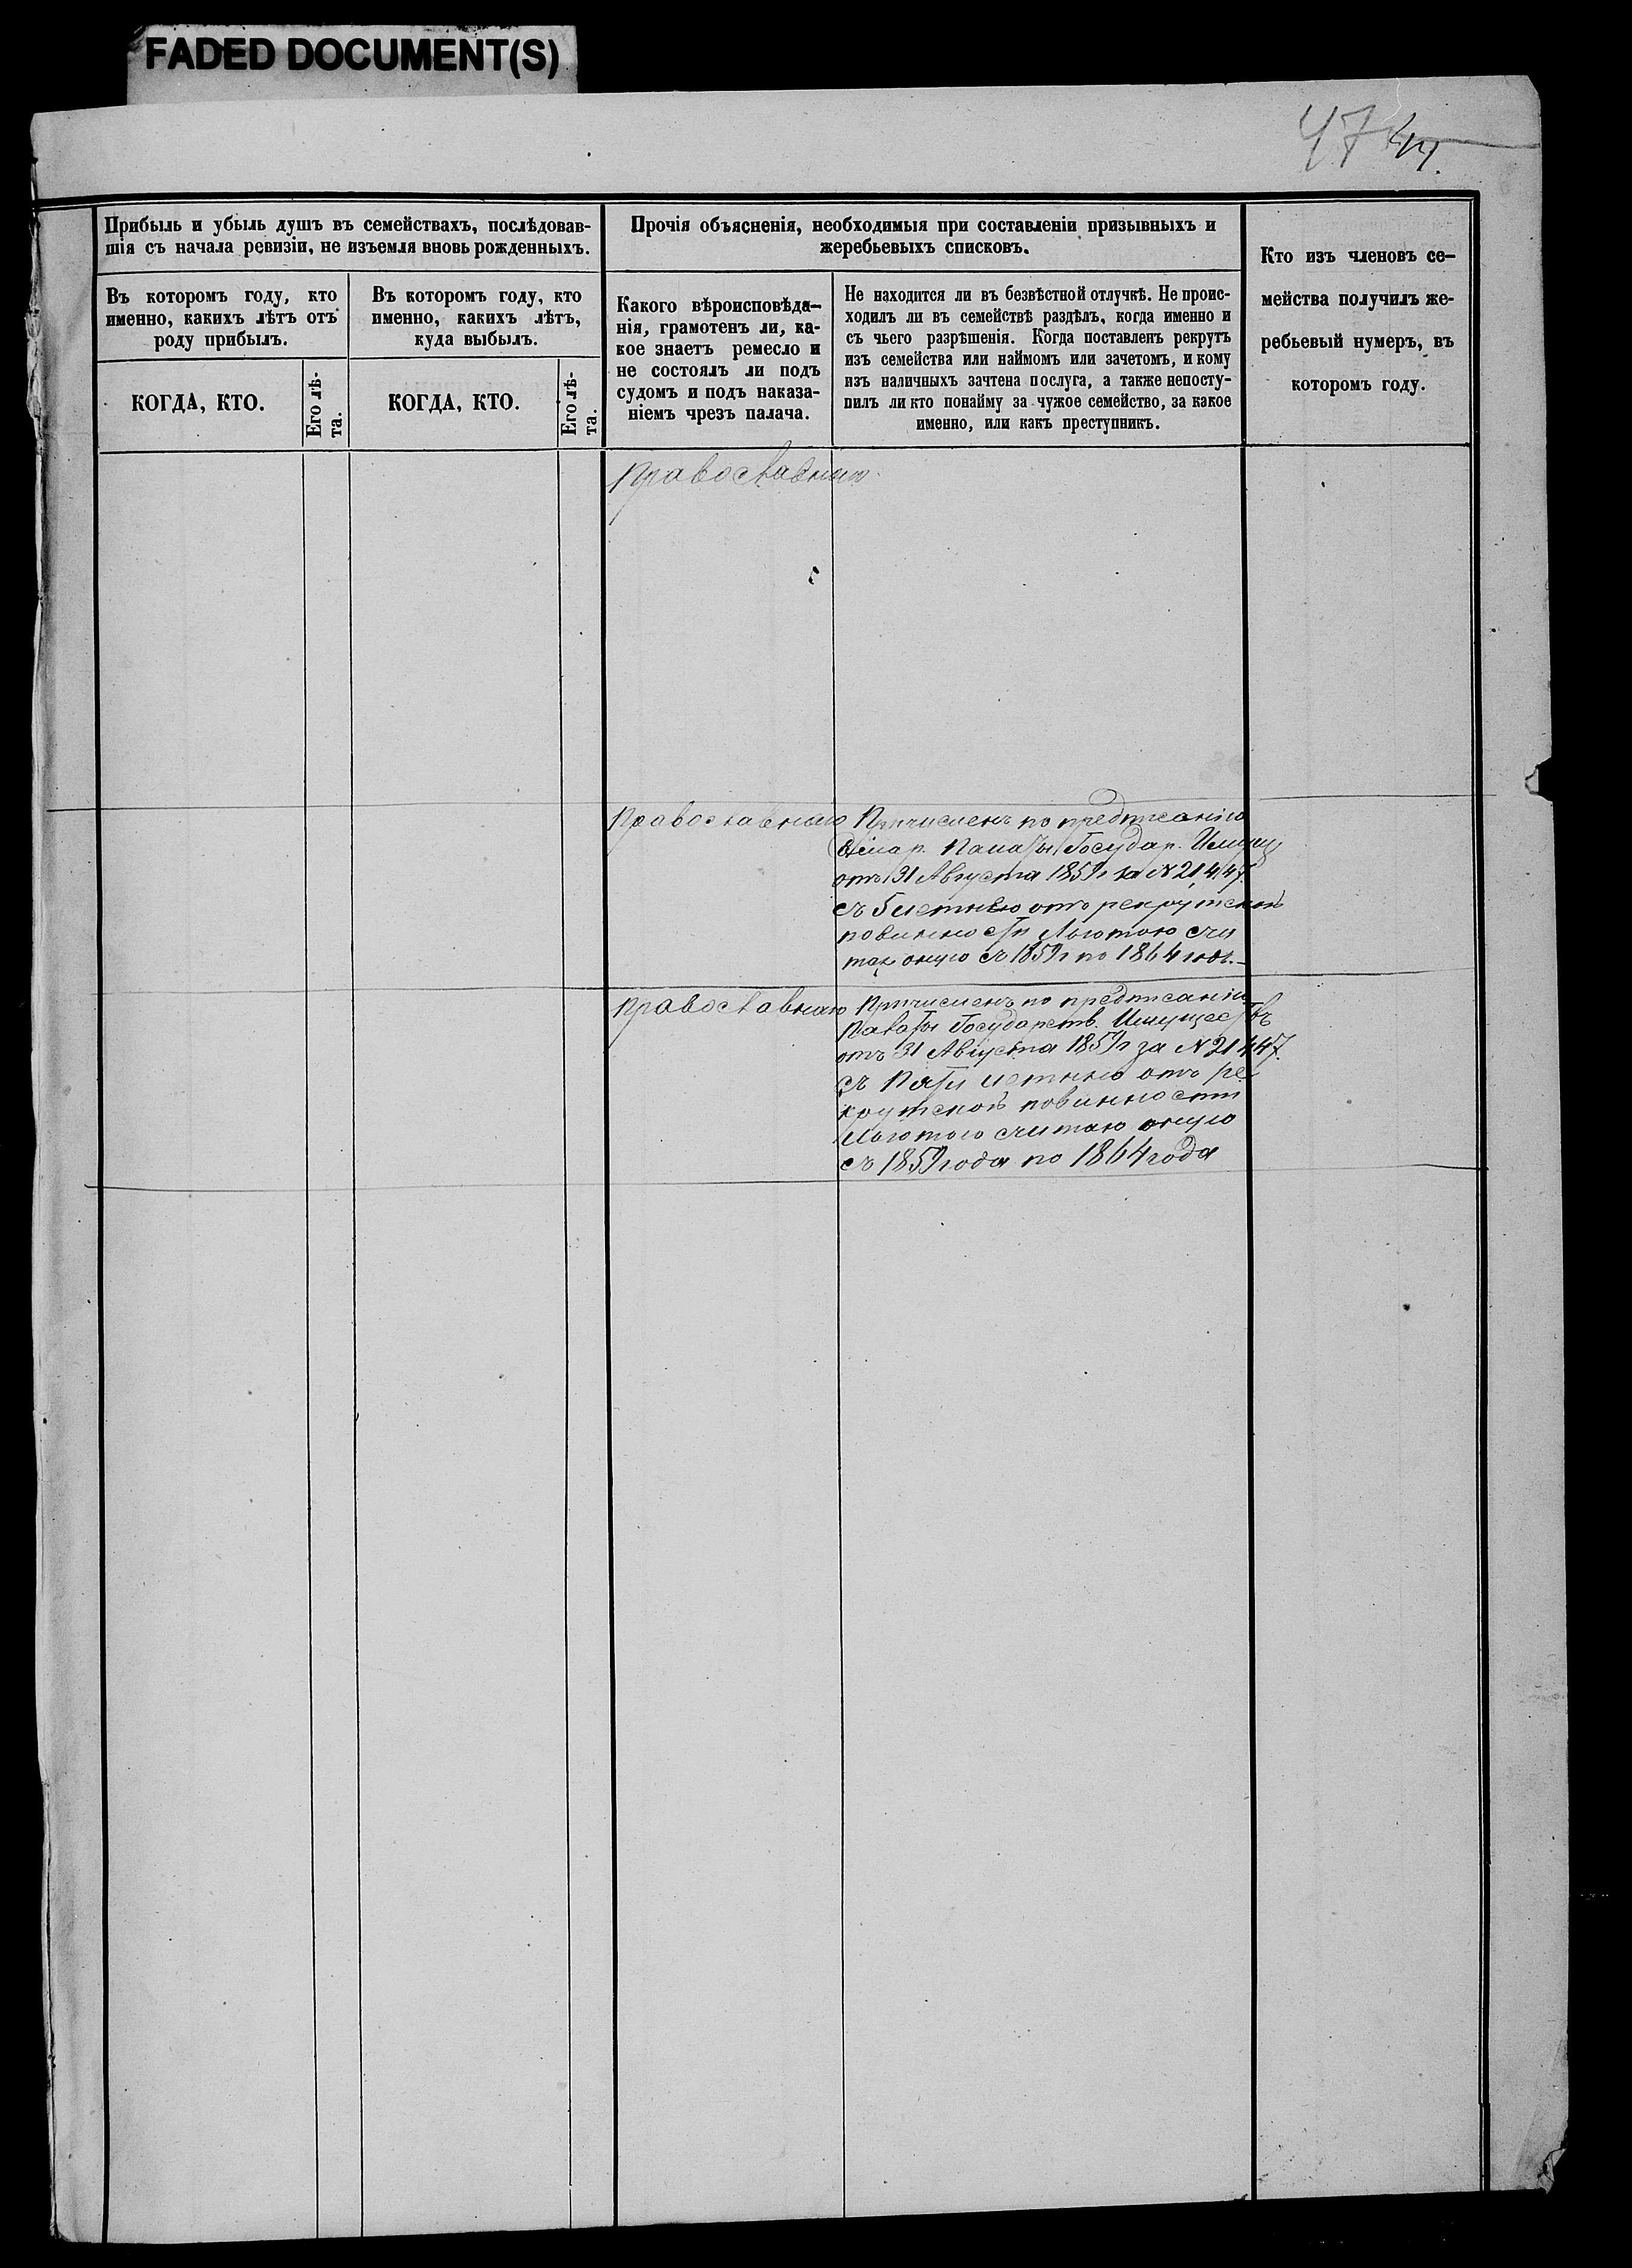 FADED DOCUMENT(S)
47 44.
Прибыль и убыль душъ въ семействахъ, послѣдовав-
шія съ начала ревизіи, не изъемля вновь рожденныхъ.
Въ которомъ году, кто
именно, какихъ лѣтъ отъ
роду прибылъ.
КОГДА, КТО.
Его лѣ-
та.
Въ которомъ году, кто
именно, какихъ лѣтъ,
куда выбылъ.
КОГДА, КТО.
Его лѣ-
та.
Прочія объясненія, необходимыя при составленіи призывныхъ и
жеребьевыхъ списковъ.
Какого вѣроисповѣда-
нія, грамотенъ ли, ка-
кое знаетъ ремесло и
не состоялъ ли подъ
судомъ и подъ наказа-
ніемъ чрезъ палача.
Не находится ли въ безвѣстной отлучкѣ. Не проис-
ходилъ ли въ семействѣ раздѣлъ, когда именно и
съ чьего разрѣшенія. Когда поставленъ рекрутъ
изъ семейства или наймомъ или зачетомъ, и кому
изъ наличныхъ зачтена послуга, а также непосту-
пилъ ли кто понайму за чужое семейство, за какое
именно, или какъ преступникъ.
Кто изъ членовъ се-
мейства получилъ же-
ребьевый нумеръ, въ
которомъ году.
Православнаго
Православнаго
Причисленъ по предписанію
Палаты Государ. Имущ
отъ 31 Августа 1859 г за N 21,447
съ 5 летнею отъ рекрутской
повинности Льготою счи
тая оную съ 1859 г по 1864 годъ.
Православнаго
Причисленъ по предписанію
Палаты Государств. Имуществъ
отъ 31 Августа 1859 г за N 21447
съ Пяти летнею отъ ре
крутской повинности
Льготою считаю оную
съ 1859 года по 1864 года